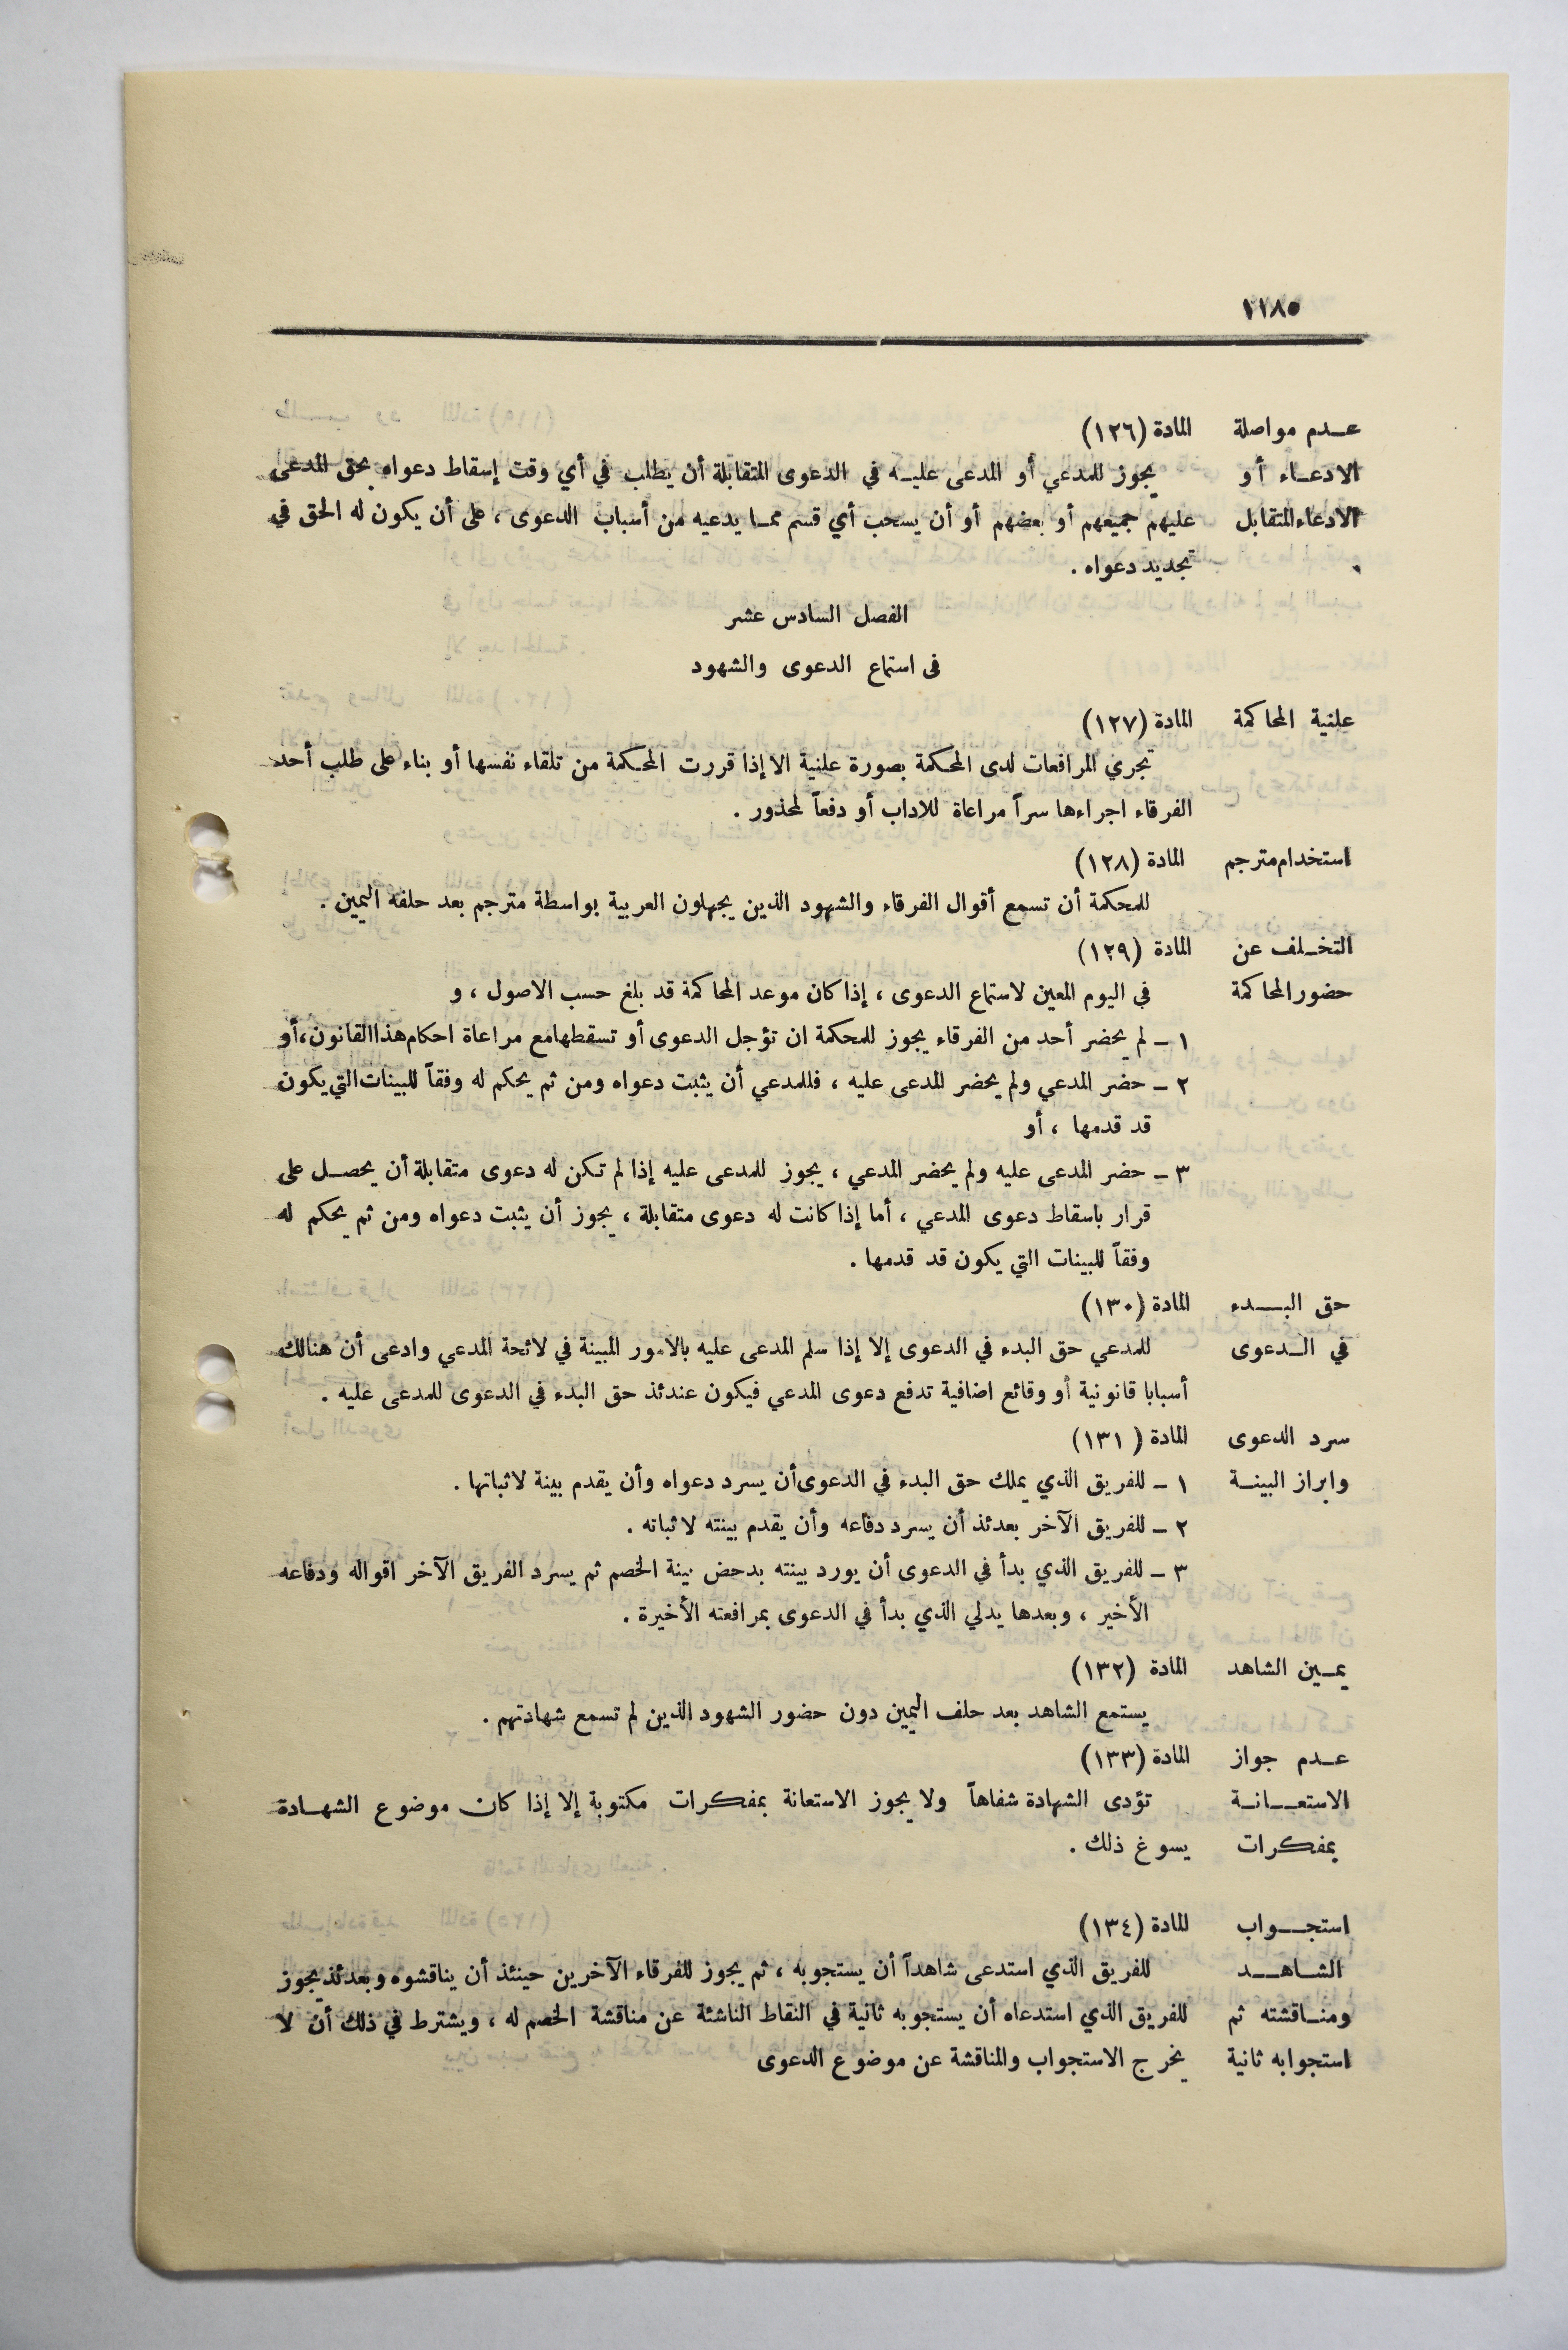 ١١٨٥
عـدم مواصلة المادة (١٢٦)
الادعـاء أو يجوز للمدعي أو المدعى عليـه في الدعوى المتقابلة أن يطلب في أي وقت إسقاط دعواه بحق المدعى
الادعاء المتقابل عليهم جميعهم أو بعضهم أو أن يسحب أي قسم ممـا يدعيه من أسباب الدعوى ، على أن يكون له الحق في
تجديد دعواه .
الفصل السادس عشر
في استماع الدعوى والشهود
علنية المحاكمة المادة (١٢٧)
تجري المرافعات لدى المحكمة بصورة علنية الا إذا قررت المحكمة من تلقاء نفسها أو بناء على طلب أحد
الفرقاء اجراءها سراً مراعاة للاداب أو دفعاً لمحذور .
استخدام مترجم المادة (١٢٨)
للمحكمة أن تسمع أقوال الفرقاء والشهود الذين يجهلون العربية بواسطة مترجم بعد حلفه اليمين .
التخـلف عن المادة (١٢٩)
حضور المحاكمة في اليوم المعين لاستماع الدعوى ، إذا كان موعد المحاكمة قد بلغ حسب الاصول ، و
١ ـ لم يحضر أحد من الفرقاء يجوز للمحكمة ان تؤجل الدعوى أو تسقطها مع مراعاة احكام هذا القانون، أو
٢ ـ حضر المدعي ولم يحضر المدعى عليه ، فللمدعي أن يثبت دعواه ومن ثم يحكم له وفقاً للبينات التي يكون
قد قدمها ، أو
٣ ـ حضر المدعى عليه ولم يحضر المدعي ، يجوز للمدعى عليه إذا لم تكن له دعوى متقابلة أن يحصـل على
قرار باسقاط دعوى المدعي ، أما إذا كانت له دعوى متقابلة ، يجوز أن يثبت دعواه ومن ثم يحكم له
وفقاً للبينات التي يكون قد قدمها .
حق البــدء المادة (١٣٠)
في الـدعوى للمدعي حق البدء في الدعوى إلا إذا سلم المدعى عليه بالامور المبينة في لائحة المدعي وادعى أن هنالك
أسبابا قانونية أو وقائع اضافية تدفع دعوى المدعي فيكون عندئذ حق البدء في الدعوى للمدعى عليه .
سرد الدعوى المادة ( ١٣١)
وابراز البينـة ١ ـ للفريق الذي يملك حق البدء في الدعوى أن يسرد دعواه وأن يقدم بينة لاثباتها .
٢ ـ للفريق الآخر بعدئذ أن يسرد دفاعه وأن يقدم بينته لاثباته .
٣ ـ للفريق الذي بدأ في الدعوى أن يورد بينته بدحض بينة الخصم ثم يسرد الفريق الآخر اقواله ودفاعه
الأخير ، وبعدها يدلي الذي بدأ في الدعوى بمرافعته الأخيرة .
يمـين الشاهد المادة (١٣٢)
يستمع الشاهد بعد حلف اليمين دون حضور الشهود الذين لم تسمع شهادتهم .
عـدم جواز المادة (١٣٣)
الاستعــانـة تؤدى الشهادة شفاهاً ولا يجوز الاستعانة بمفكرات مكتوبة إلا إذا كان موضوع الشهـادة
بمفكرات يسوغ ذلك .
استجــواب المادة (١٣٤)
الشـاهــد للفريق الذي استدعى شاهداً أن يستجوبه ، ثم يجوز للفرقاء الآخرين حينئذ أن يناقشوه وبعدئذ يجوز
ومنـاقشته ثم للفريق الذي استدعاه أن يستجوبه ثانية في النقاط الناشئة عن مناقشة الخصم له ، ويشترط في ذلك أن لا
استجوابه ثانية يخرج الاستجواب والمناقشة عن موضوع الدعوى